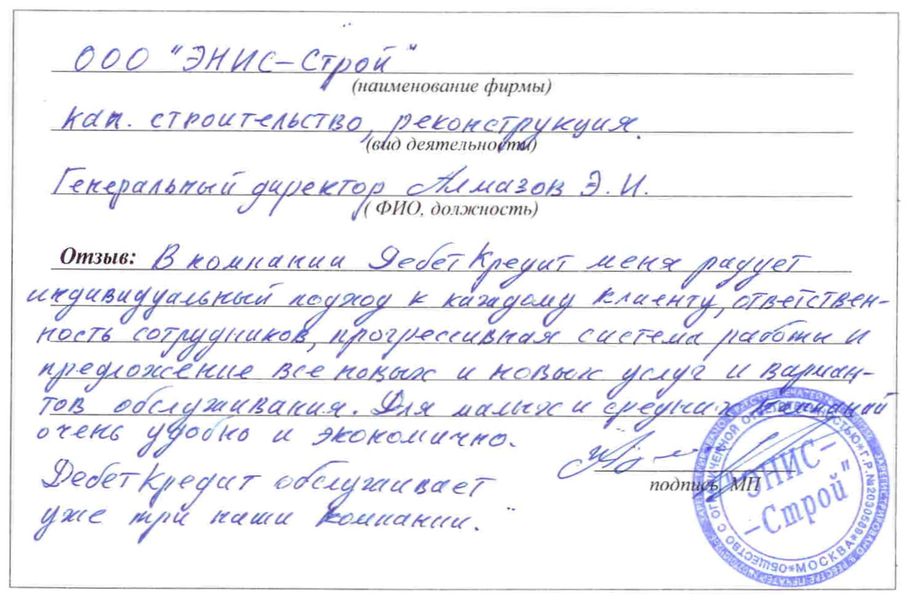 ООО "ЭНИС-Строй"
(наименование фирмы)
кап. строительство, реконструкция.
(вид деятельности)
Генеральный директор Алмазов Э.И.
( ФИО, должность)
Отзыв: В компании ДебетКредит меня радует
индивидуальный подход к каждому клиенту, ответствен-
ность сотрудников, прогрессивная система работы и
предложение все новых и новых услуг и вариан-
тов обслуживания. Для малых и средних компаний
очень удобно и экономично.
ДебетКредит обслуживает
уже три наши компании.
подпись, МП
"ЭНИС-
-Строй"
ОБЩЕСТВО С ОГРАНИЧЕННОЙ ОТВЕТСТВЕННОСТЬЮ
МОСКВА